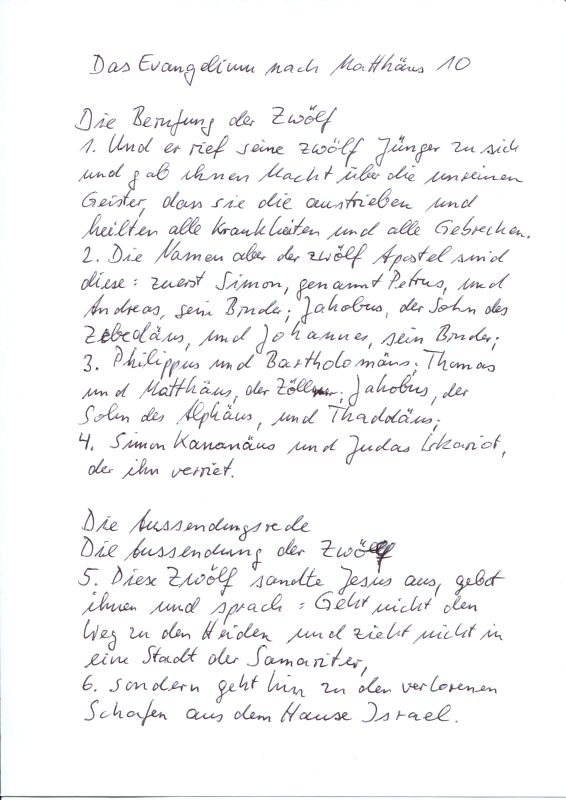 Das Evangelium nach Matthäus 10
Die Berufung der Zwölf
1. Und er rief seine zwölf Jünger zu sich
und gab ihnen Macht über die unreinen
Geister, dass sie die austrieben und
heilten alle Krankheiten und alle Gebrechen.
2. Die Namen aber der zwölf Apostel sind
diese: zuerst Simon, genannt Petrus, und
Andreas, sein Bruder; Jakobus, der Sohn des
Zebedäus, und Johannes, sein Bruder;
3. Philippus und Bartholomäus; Thomas
und Matthäus, der Zöllner; Jakobus, der
Sohn des Alphäus, und Thaddäus;
4. Simon Kananäus und Judas Iskariot,
der ihn verriet.
Die Aussendungsrede
Die Aussendung der Zwölf
5. Diese Zwölf sandte Jesus aus, gebot
ihnen und sprach: Geht nicht den
Weg zu den Heiden und zieht nicht in
eine Stadt der Samariter,
6. sondern geht hin zu den verlorenen
Schafen aus dem Hause Israel.